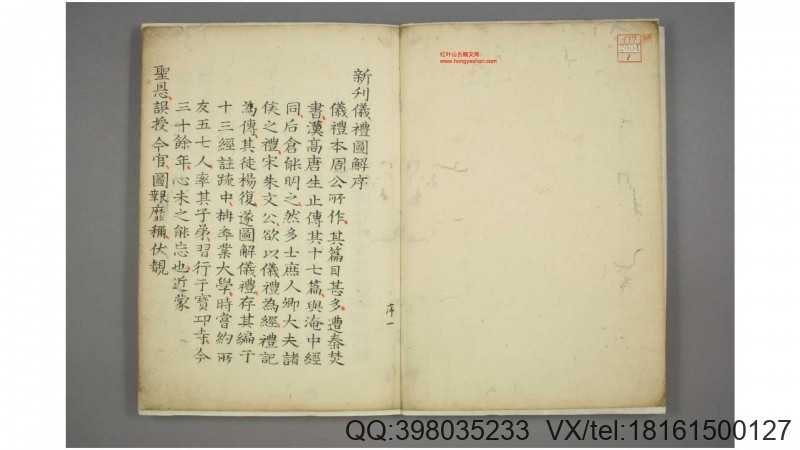 新刋儀禮圖解序
儀禮本周公所作其篇目甚多遭秦焚
書漢高唐生止傳其十七篇與淹中經
同后倉能明之然多士庶人卿大夫諸
侯之禮宋朱文公欲以儀禮為經禮記
為傳其徒楊復遂圖解儀禮存其編于
十三經註疏中柟卒業大學時嘗約所
友五七人率其子弟習行于寳邛寺今
三十餘年心未之能忘也近蒙
聖恩誤授今官圖報靡稱伏覩
序一
红叶山古籍文库:
www.hongyeshan.com
QQ:398035233 VX/tel:18161500127